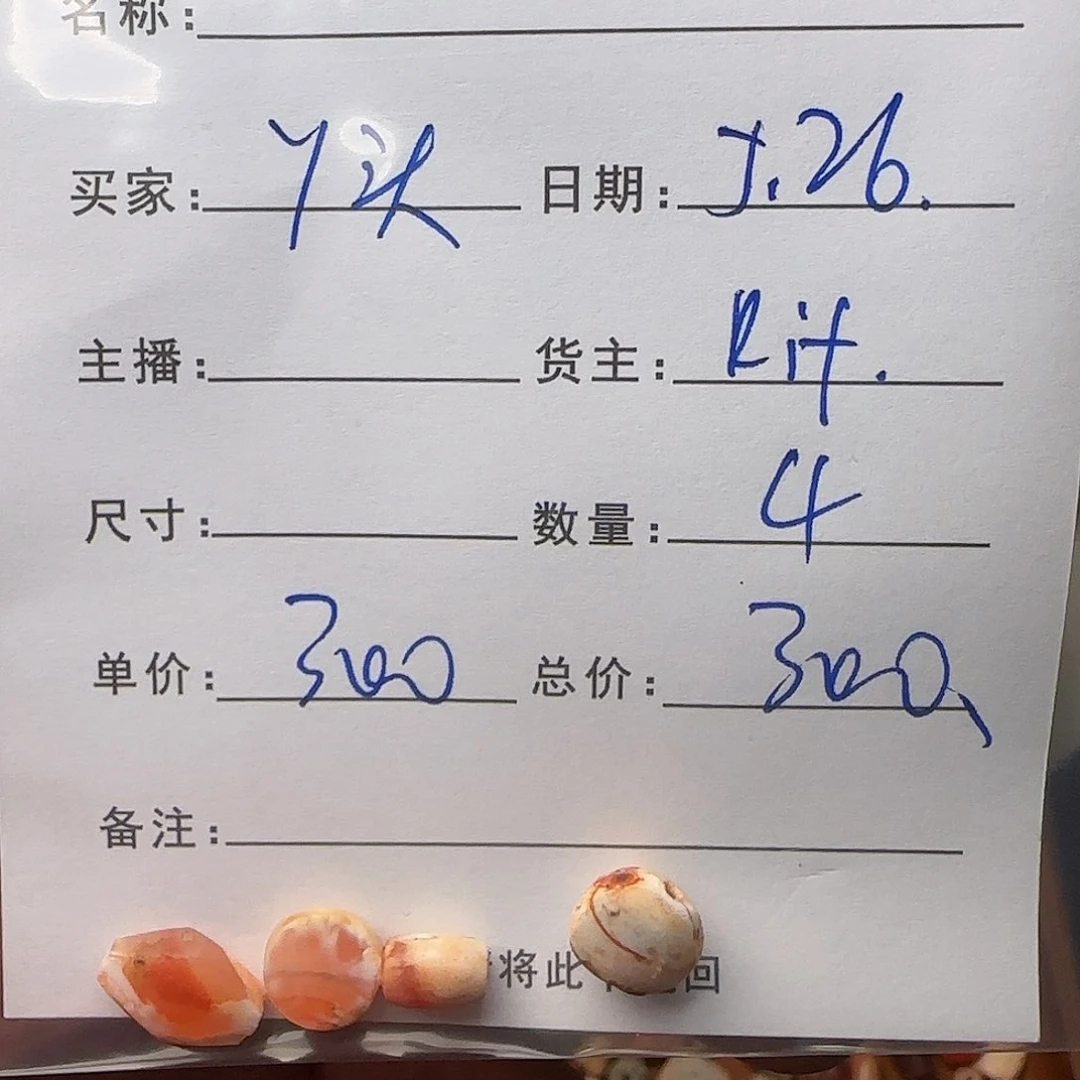 名称:
买家: 丫头 日期: 5.26.
主播: 货主: Rif.
尺寸: 数量: 4
单价: 300 总价: 300
备注:
将此 回